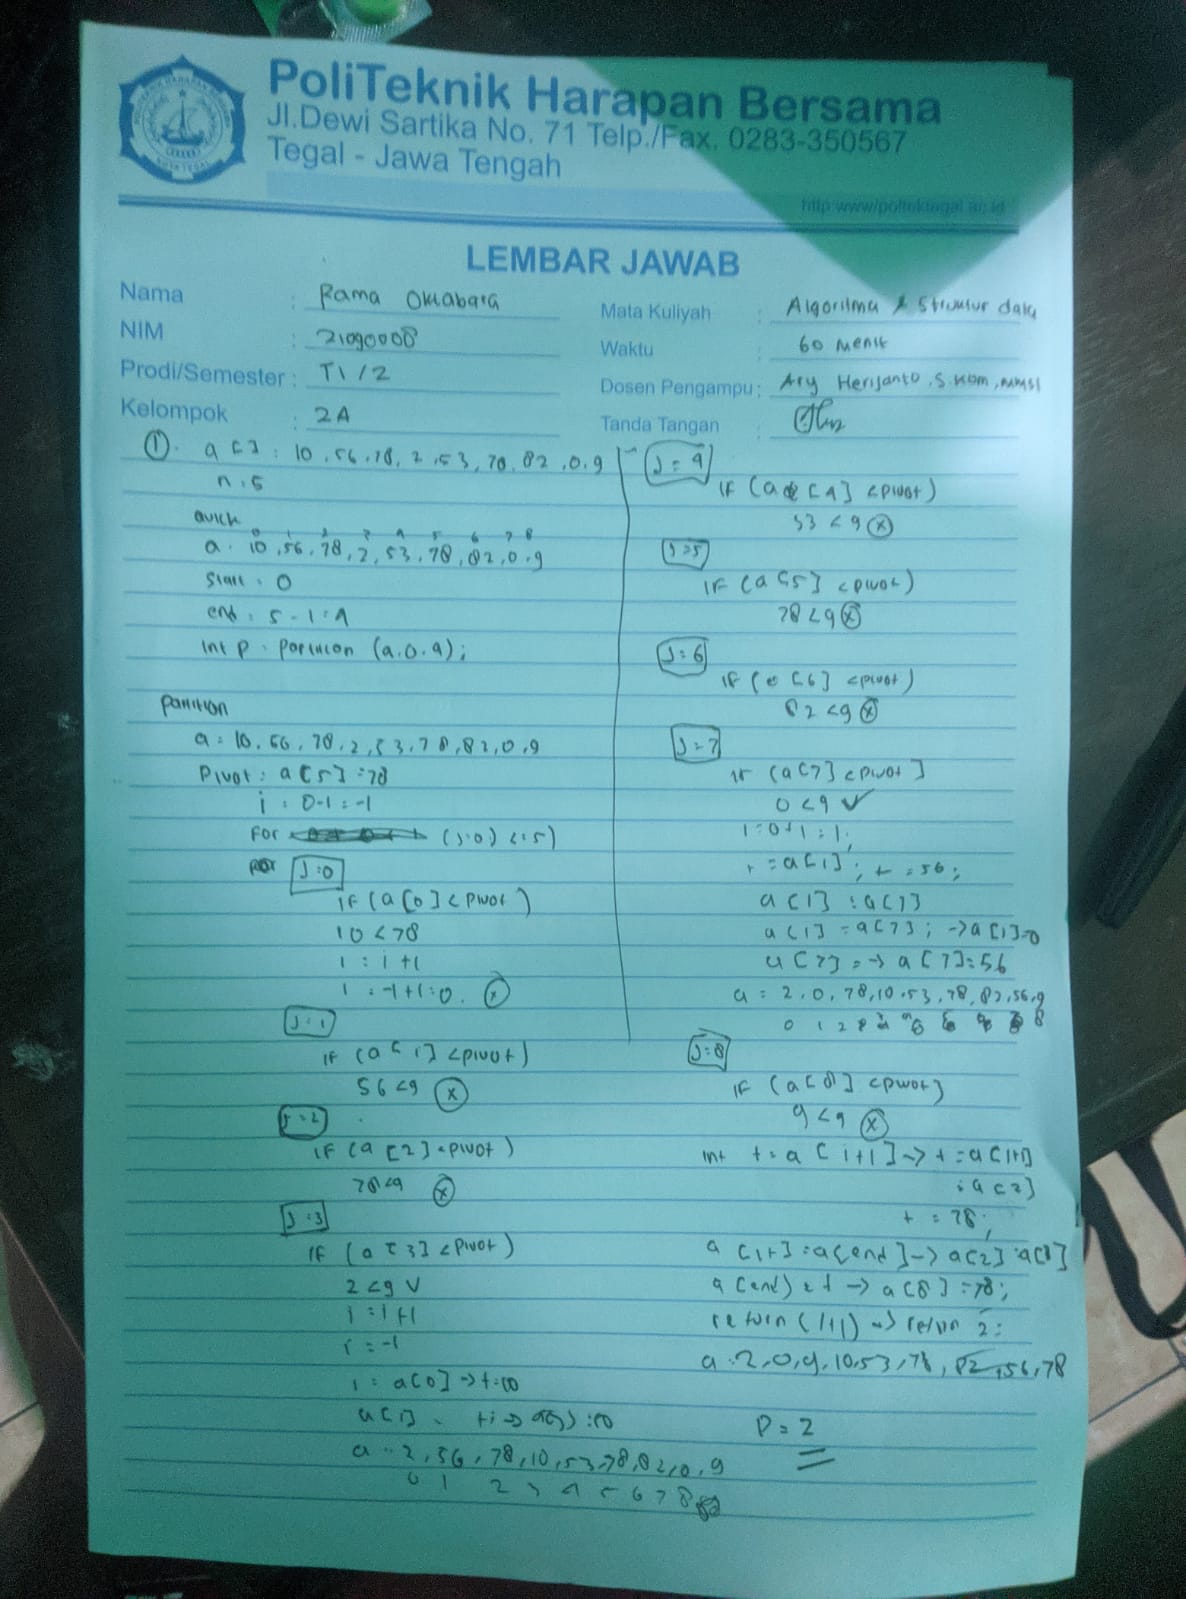 PoliTeknik Harapan Bersama
Jl.Dewi Sartika No. 71 Telp./Fax. 0283-350567
Tegal - Jawa Tengah
LEMBAR JAWAB
Nama : Rama Oktabara
NIM : 21090008
Prodi/Semester : TI / 2
Kelompok : 2A
Mata Kuliyah : Algoritma & Struktur data
Waktu : 60 Menit
Dosen Pengampu : Ary Herijanto .S.Kom,MMSI
Tanda Tangan :
① . a [] : 10 ,56 ,78, 2 ,53, 78, 82 ,0, 9
n : 5
quick
0 1 2 3 4 5 6 7 8
a . 10 ,56, 78, 2, 53, 78, 82, 0, 9
Start : 0
end : 5 - 1 : 4
Int p .
(a.0.4);
Partition
a = 10, 56, 78, 2, 53, 78, 82, 0, 9
Pivot : a [5] : 78
i : 0-1 : -1
For (J:0) <:5)
J :0
if (a [0] < pivot)
10 < 78
i : i +1
i : -1+1:0. ⓧ
J : 1
if (a [1] < pivot)
56 <9 ⓧ
J = 2
if (a [2] < pivot)
78<9 ⓧ
J :3
if (a [3] < pivot)
2 <9 V
i : i +1
i = -1
i : a[0] -> t:10
a = 2, 56, 78, 10, 53, 78, 82, 0, 9
0 1 2 3 4 5 6 7 8
J = 4
if (a [4] < pivot)
53 < 9 ⓧ
J =5
if (a [5] < pivot)
78 <9 ⓧ
J = 6
if (a [6] < pivot)
82 <9 ⓧ
J = 7
if (a [7] < pivot]
0 <9 V
i =0+1 : 1;
t = a[1]; t = 56;
a [1] : a[7]
a [1] = a[7]; -> a [1]=0
a [7] = -> a [7]=56
a = 2, 0, 78, 10, 53, 78, 82, 56, 9
J=8
if (a [8] < pivot)
9 <9 ⓧ
int t = a [i+1] -> t = a [1+1]
: a [2]
t = 78;
a [i+] : a[end] -> a[2] : a[8]
a [end) = t -> a [8] = 78;
return (i+1) -> return 2;
a = 2, 0, 9, 10, 53, 78, 82, 56, 78
P = 2